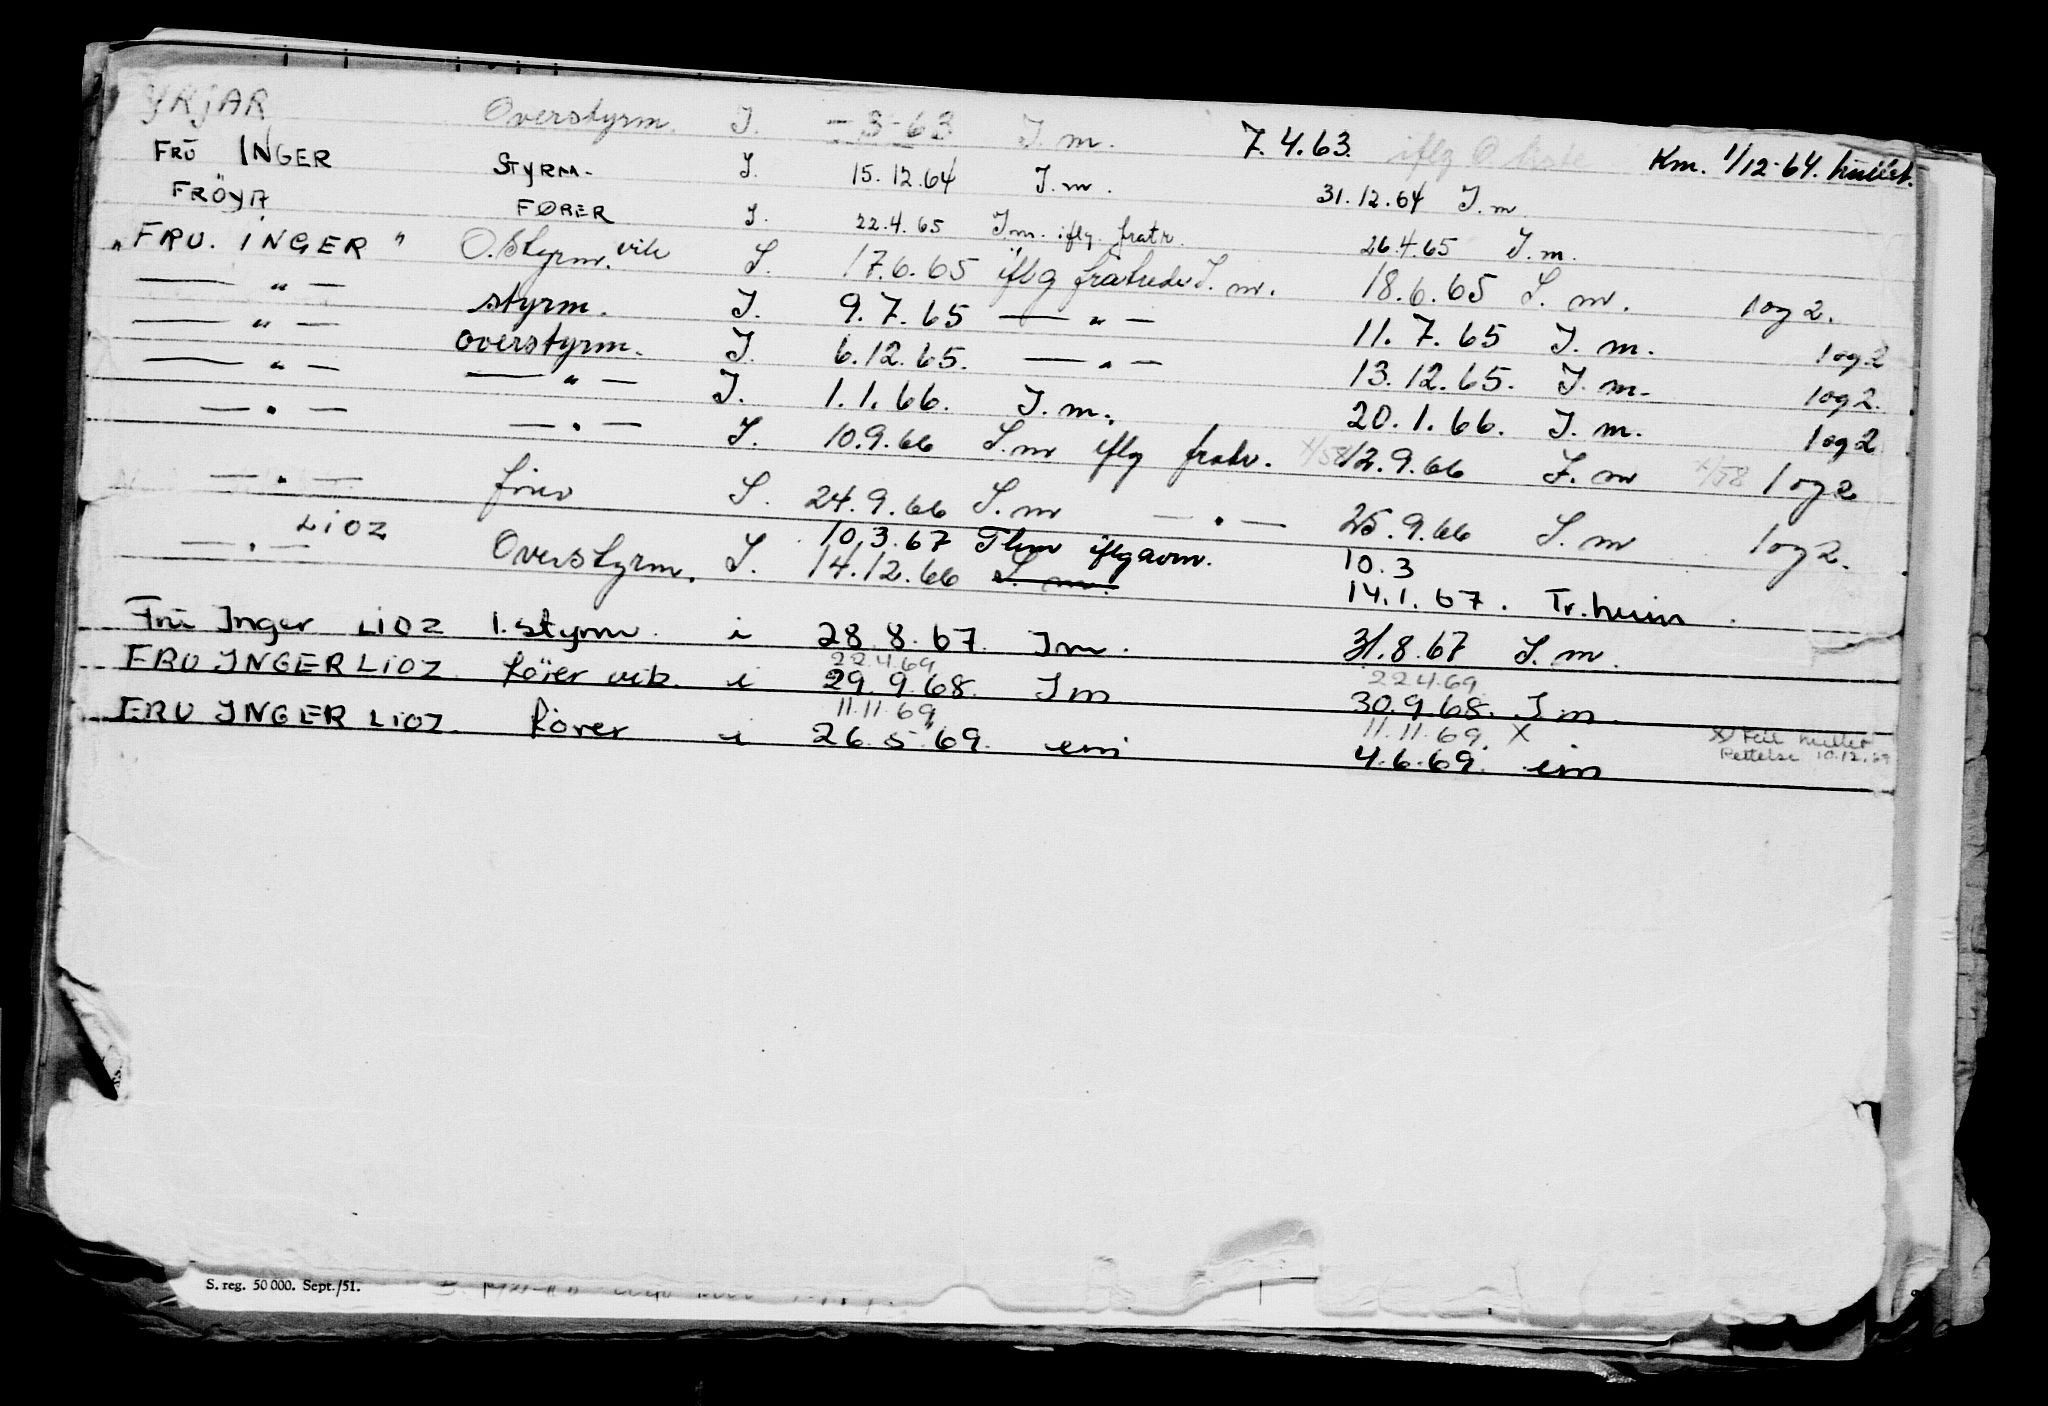 YRJAR Overstyrm. I. - 3-63 I. m. 7.4.63. iflg Km. 1/12-64.
FRU INGER STYRM. I. 15.12.64 I.m. 31.12.64 I.m.
FRÖYA FØRER I. 22.4.65 I.m. iflg. fratr. 26.4.65 I.m.
"FRU. INGER" O.Styrm. vik I. 17.6.65 iflg fratreden I.m. 18.6.65 I. m. 1 og 2.
— " — styrm. I. 9.7.65 — " — 11.7.65 I. m. 1 og 2
— " — overstyrm. I. 6.12.65. — " — 13.12.65. I. m. 1 og 2.
— " — — " — I. 1.1.66. I.m. 20.1.66. I. m. 1 og 2
— " — — " — I. 10.9.66 I.m iflg fratr. X/58 12.9.66 I. m X/58 1 og 2
— " — fører I. 24.9.66 I.m — " — 25.9.66 I. m 1 og 2.
LIOZ 10.3.67 Thm iflg avm. 10.3
— " — Overstyrm. I. 14.12.66 I. m. 14.1.67. Tr.heim
Fru Inger LIOZ 1.styrm. i 28.8.67. Im. 31.8.67 I.m.
22.4.69 22.4.69
FRU INGER LIOZ. Föier vik. i 29.9.68. Im 30.9.68. Im.
11.11.69 11.11.69. X
FRU INGER LIOZ. Förer i 26.5.69. em 4.6.69. em
X) Feil
Rettelse 10.12.69
S. reg. 50 000. Sept./51.